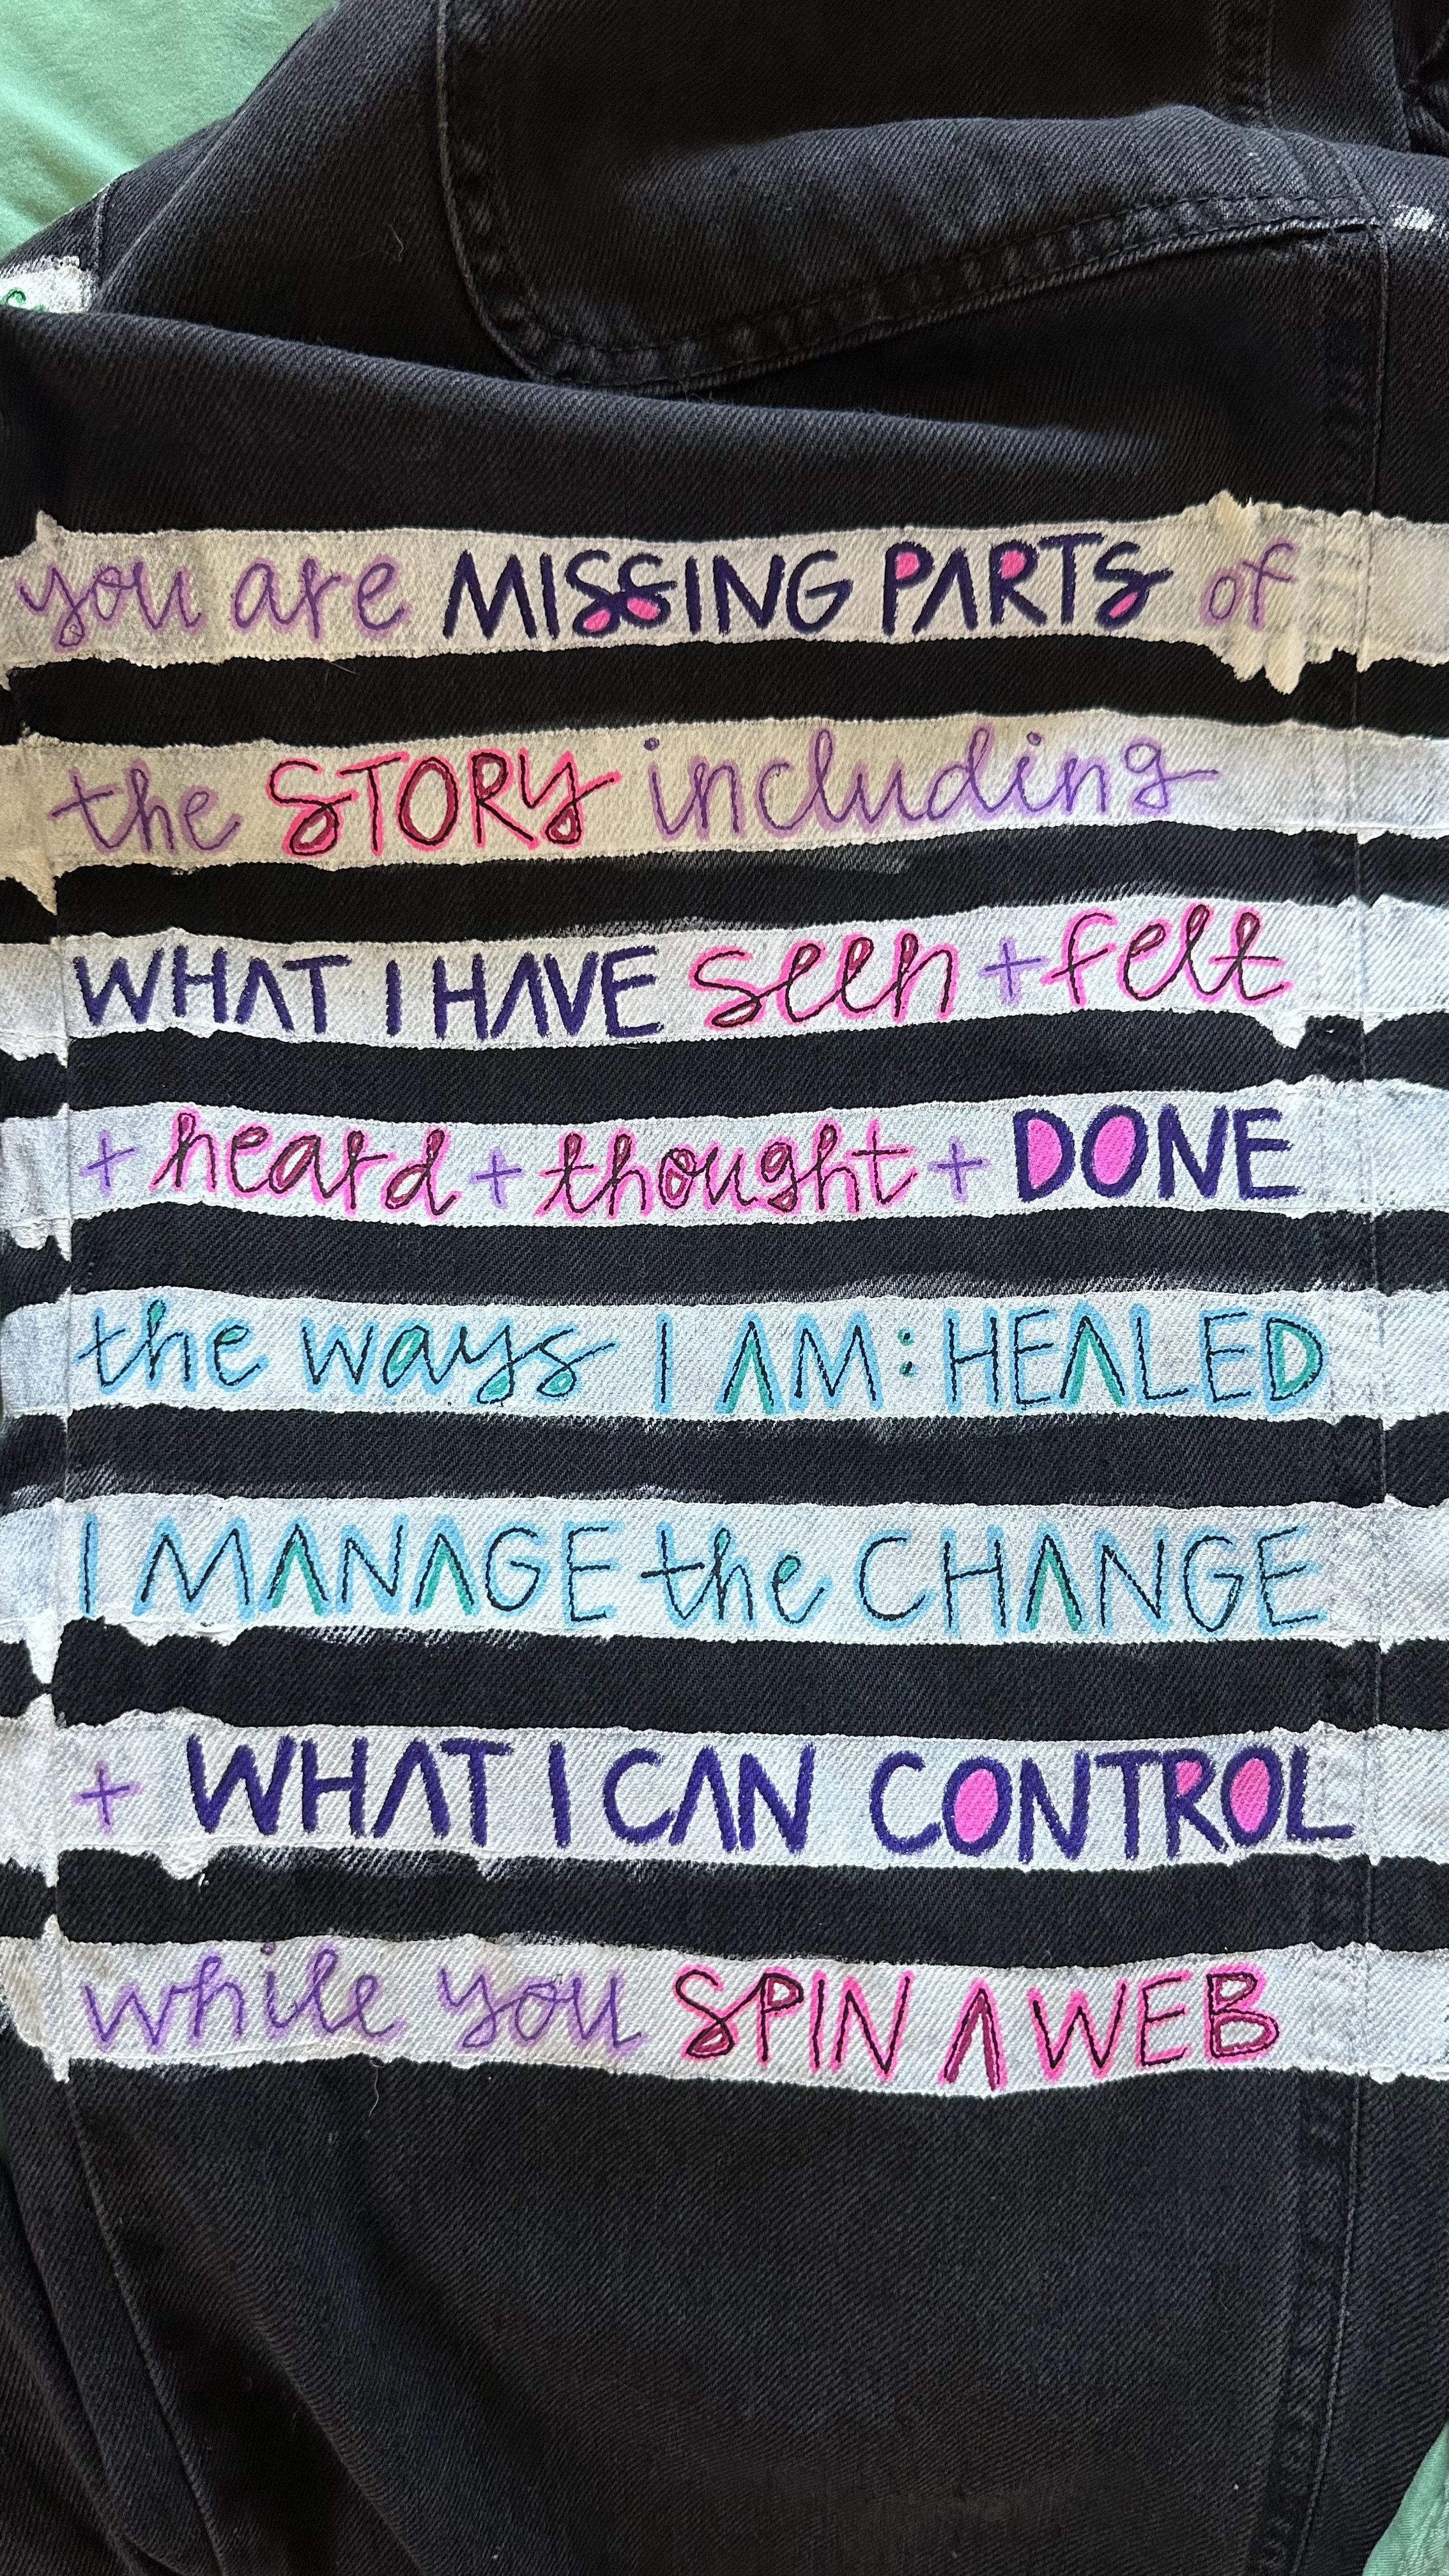 you are MISSING PARTS of
the STORY including
WHAT I HAVE seen + felt
+ heard + thought + DONE
the ways I AM: HEALED
I MANAGE the CHANGE
+ WHAT I CAN CONTROL
while you SPIN A WEB